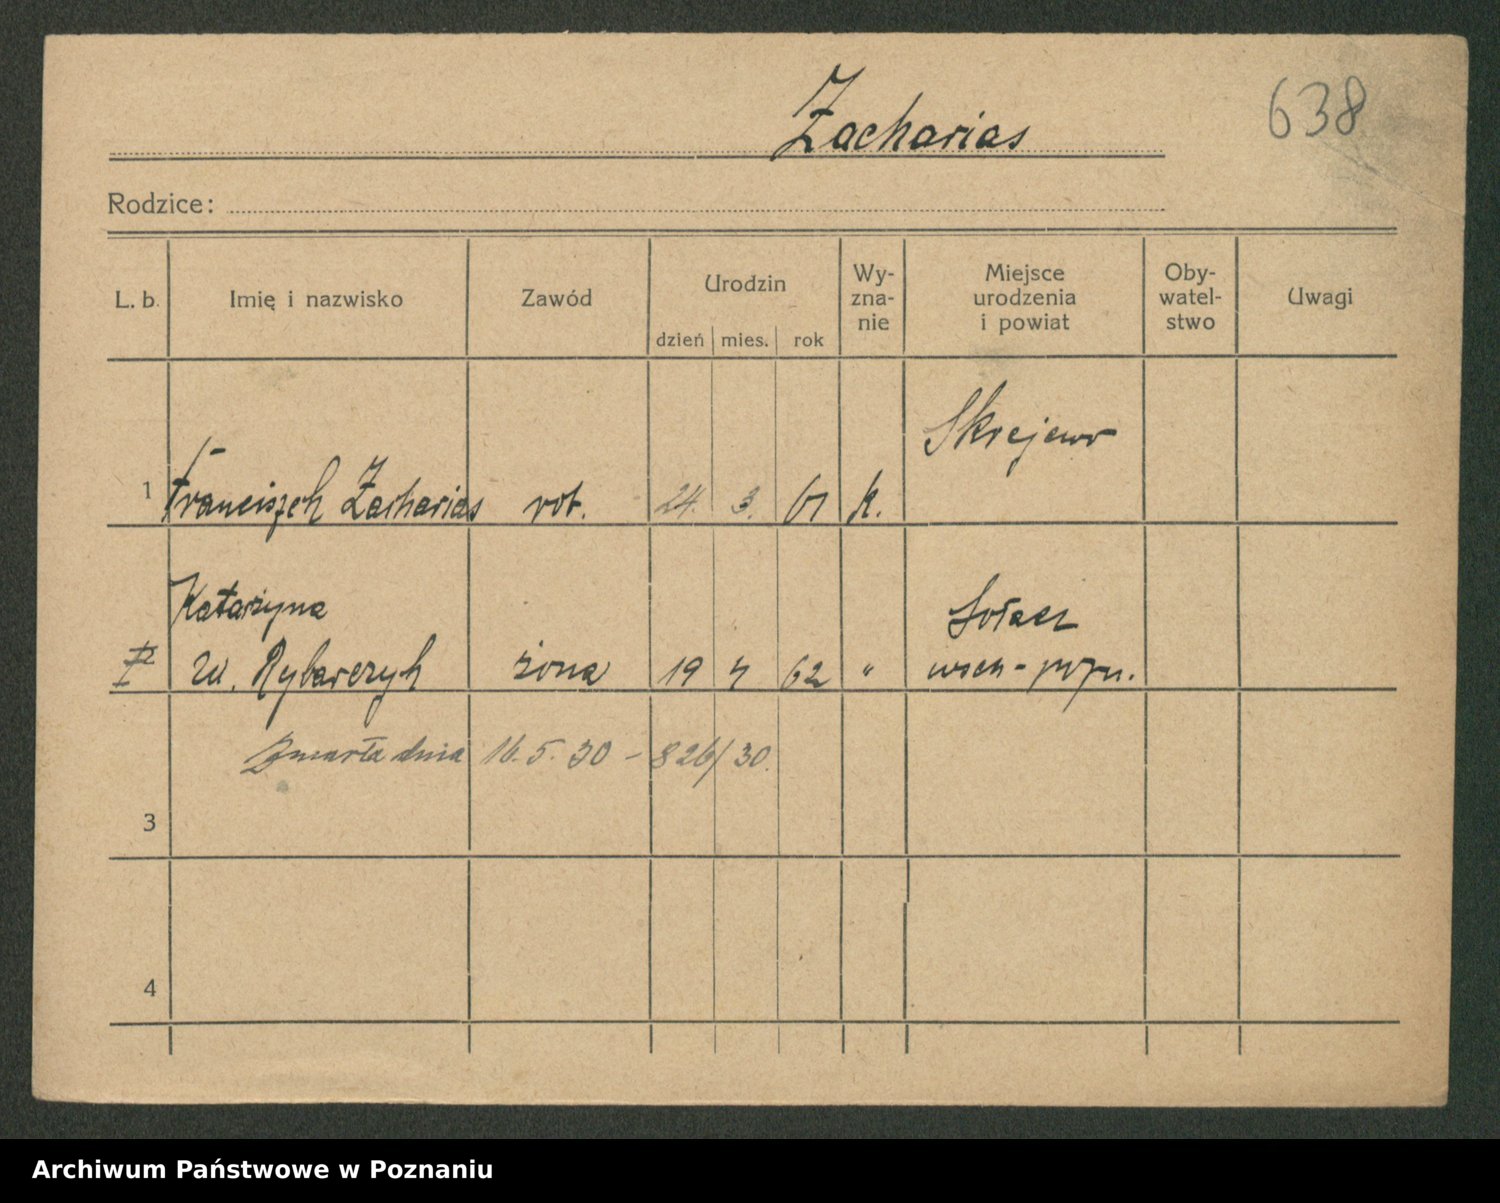 Zacharias
638
Rodzice:
L. b. Imię i nazwisko Zawód Urodzin dzień mies. rok Wy-zna-nie Miejsce urodzenia i powiat Oby-watel-stwo Uwagi
Skrejewo
1 Franciszek Zacharias rob. 24. 3. 61 k.
Katarzyna Sołacz
2 I u. Rybarczyk żona 19 4 62 " wsch-pozn.
Zmarła dnia 16. 5. 30 - 826/30.
3
4
Archiwum Państwowe w Poznaniu